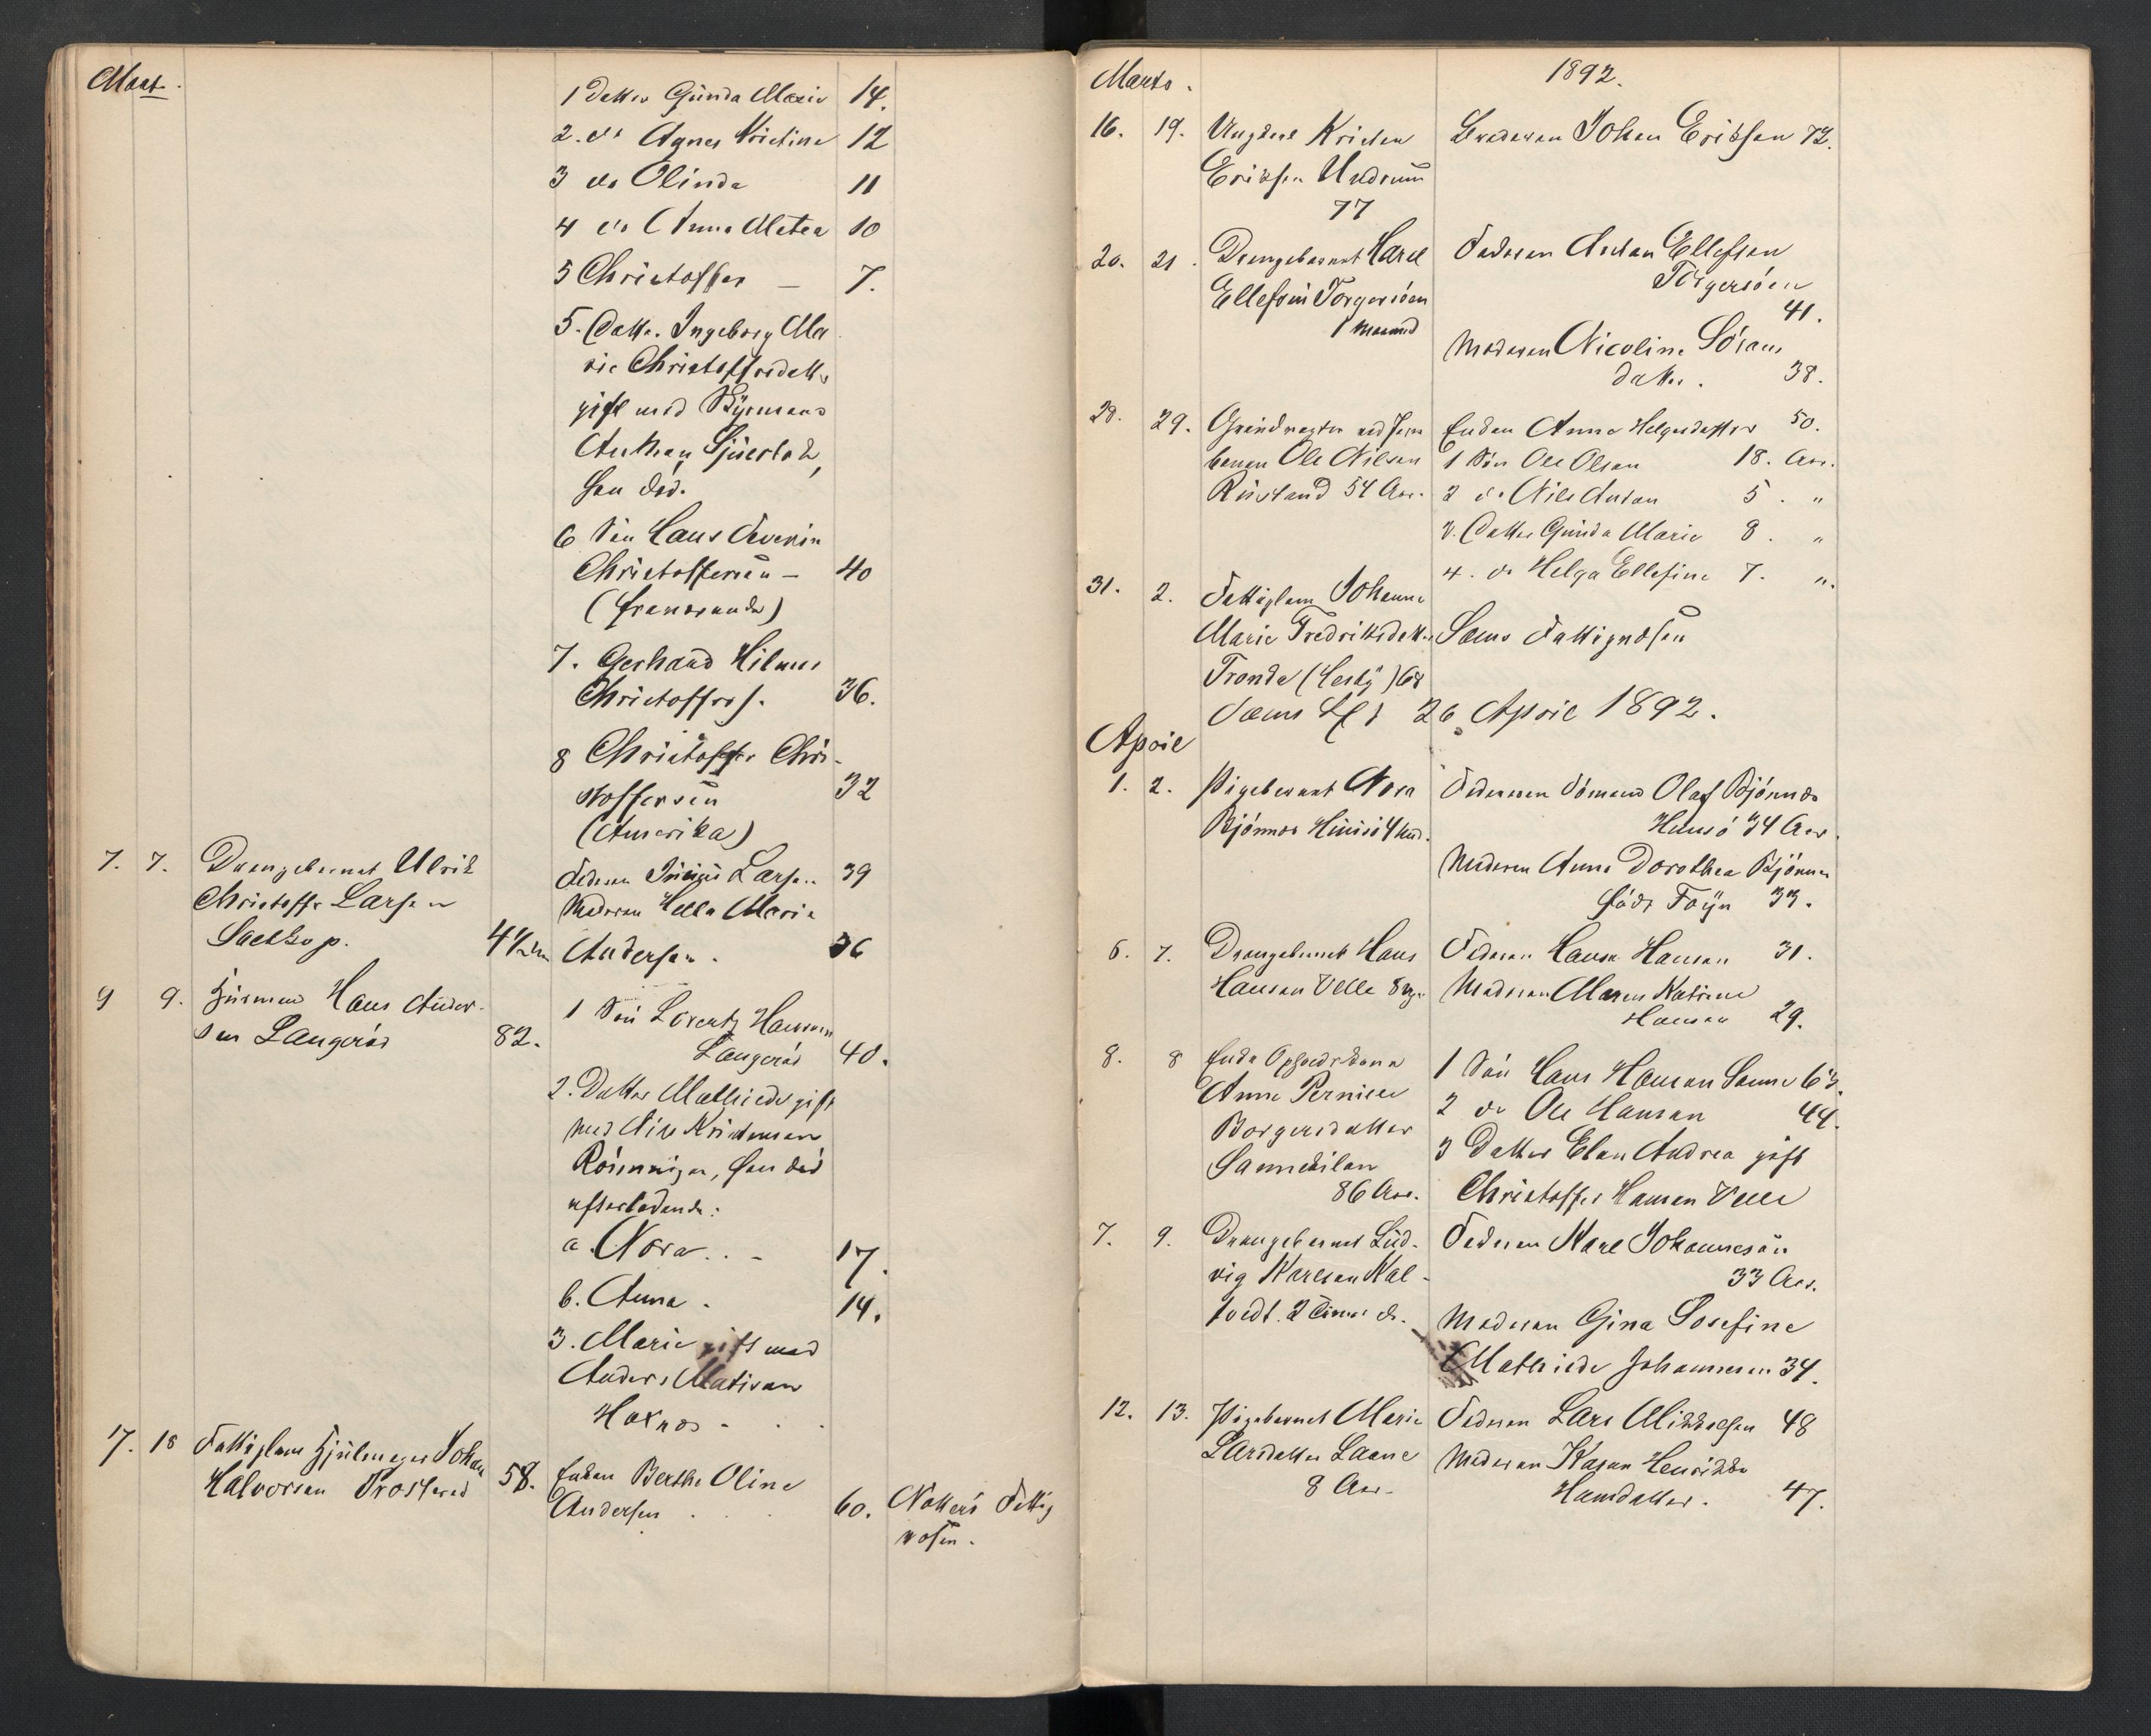 Marts.
1 Datter Gunda Marie 14.
2. do Agnes Kristine 12
3 do Olinda 11
4 do Anna Matea 10
5 Christoffer — 7.
5. Datter Ingeborg Ma
rie Christoffersdatter
gift med Styrmand
Anthon Sjuerstok,
hun død.
6 Søn Hans Severin
Christoffersen — 40
(fraværende)
7. Gerhard Hilmer
Christoffers. 36.
8 Christoffer Chri-
stoffersen 32
(Amerika)
7. 7. Drengebarnet Ulrik
Christoffer Larsen
Sackop. 4 1/2
Faderen Larsen 39
Moderen Hella Marie
Andersen. 36
9 9. Husmand Hans Ander-
sen Langerød 82.
1 Søn Lorentz Hansen
Langerød 40.
2. Datter Mathilde gift
med Kristensen
Rønningen, hun død
efterladende:
a. Nora . . — 17.
b. Anna . 14.
3. Marie gift med
Anders Matisen
Haxnes - . .
17. 18 Fattiglem Hjulmager Johan
Halvorsen Prosterød 58.
Enken Berthe Oline
Andersen . . . 60.
Nøtterø Fattig
væsen.
Marts.
1892.
16. 19. Ungkarl Kristen
Eriksen Undrum
77
Broderen Johan Eriksen 72.
20. 21. Drengebarnet Harel
Ellefsen Torgersøen
1 Maaned
Faderen Anton Ellefsen
Torgersøen
41.
Moderen Nicoline Sørens
datter. 38.
28. 29. Grindvogter ved Jern
banen Ole Nilsen
Rustand 54 Aar.
Enken Anne Helgesdatter 50.
1 Søn Ole Olsen 18. Aar.
2 do Nils Anton 5. "
3. Datter Gunda Marie 8. "
4. do Helga Ellefine 7. "
31. 2. Fattiglem Johanne
Marie Fredriksdatter
Tronda (Hesby) 68
Sems Fattigvæsen
Sems 26 April 1892.
April
1. 2. Pigebarnet Nora
Bjønnes Husø 4
Faderen Sømand Olaf Bjønnes
Husø 34 Aar.
Moderen Anne Dorothea Bjønnes
født Foÿn 33.
6. 7. Drengebarnet Hans
Hansen Velle 8
Faderen Hans Hansen 31.
Moderen Maren Katrine
Hansen 29.
8. 8 Enke Opfoedskone
Anne Pernille
Borgersdatter
86 Aar.
1 Søn Hans Hansen Sanne 63.
2 do Ole Hansen 44.
3 Datter Elen Andrea gift
Christoffer Hansen Velle
7. 9. Drengebarnet Lud-
vig Karlsen Kal-
tvedt. 2 Timer
Faderen Karl Johannesen
33 Aar.
Moderen Gina Josefine
Mathilde Johannesen 34.
12. 13. Pigebarnet Marie
Larsdatter Laane
8 Aar.
Faderen Lars Mikkelsen 48
Moderen Karen Henrikke
Hansdatter. 47.